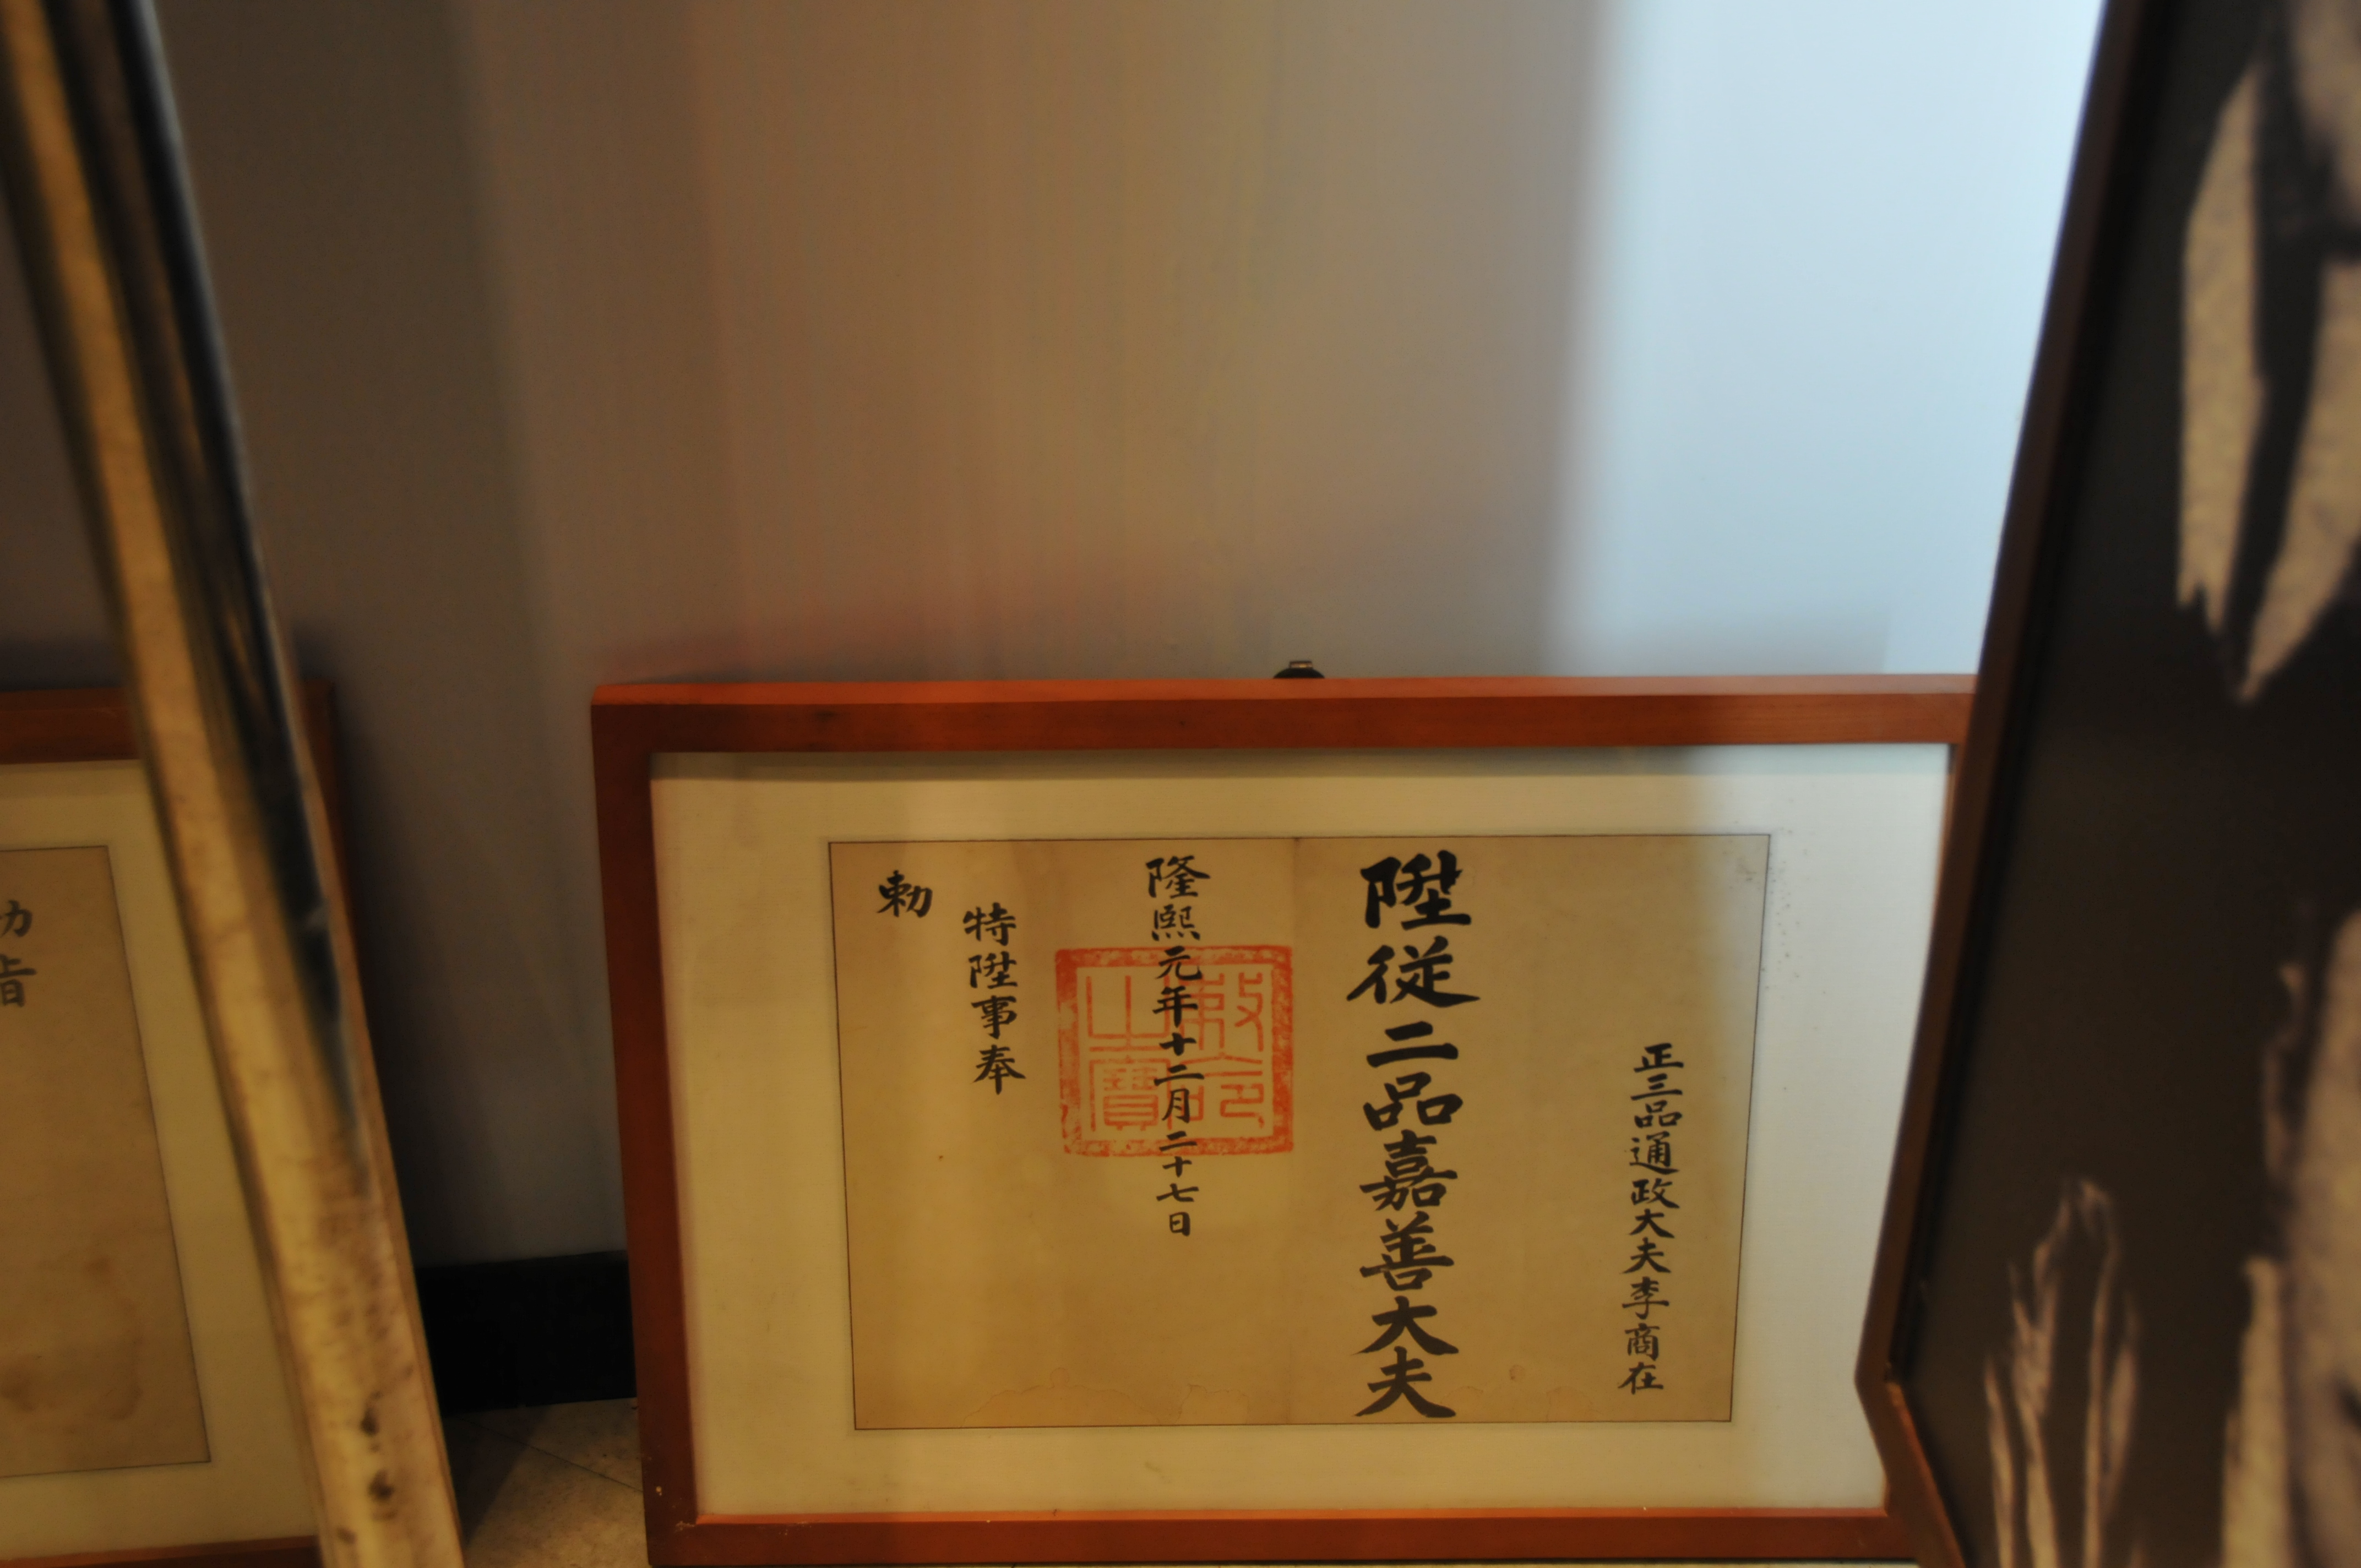 正三品通政大夫李商在
陞従二品嘉善大夫
隆熙元年十二月二十七日
敕命之寶
特陞事奉
勅